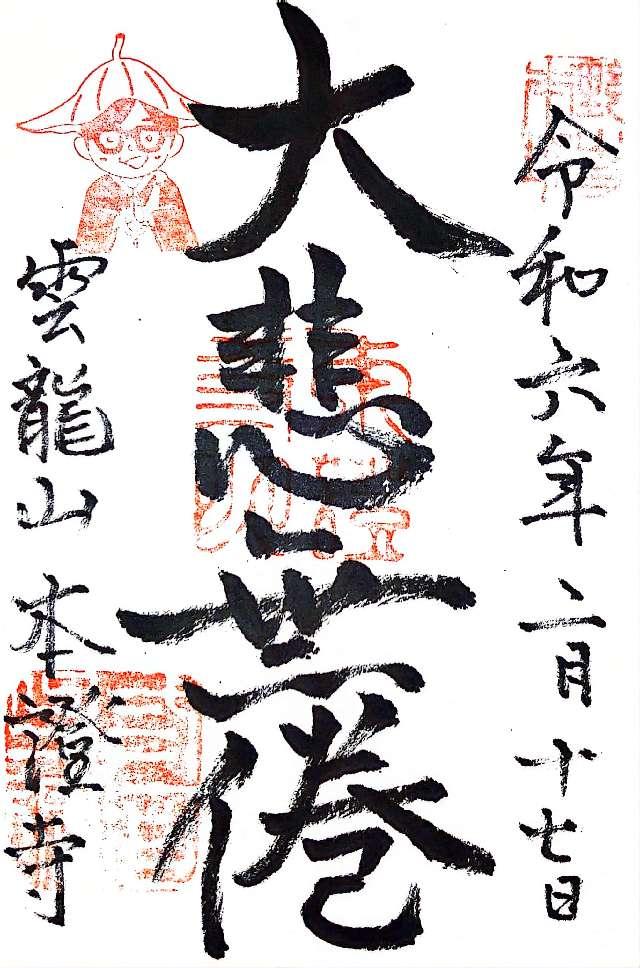 令和六年二月十七日
大悲無倦
雲龍山本證寺